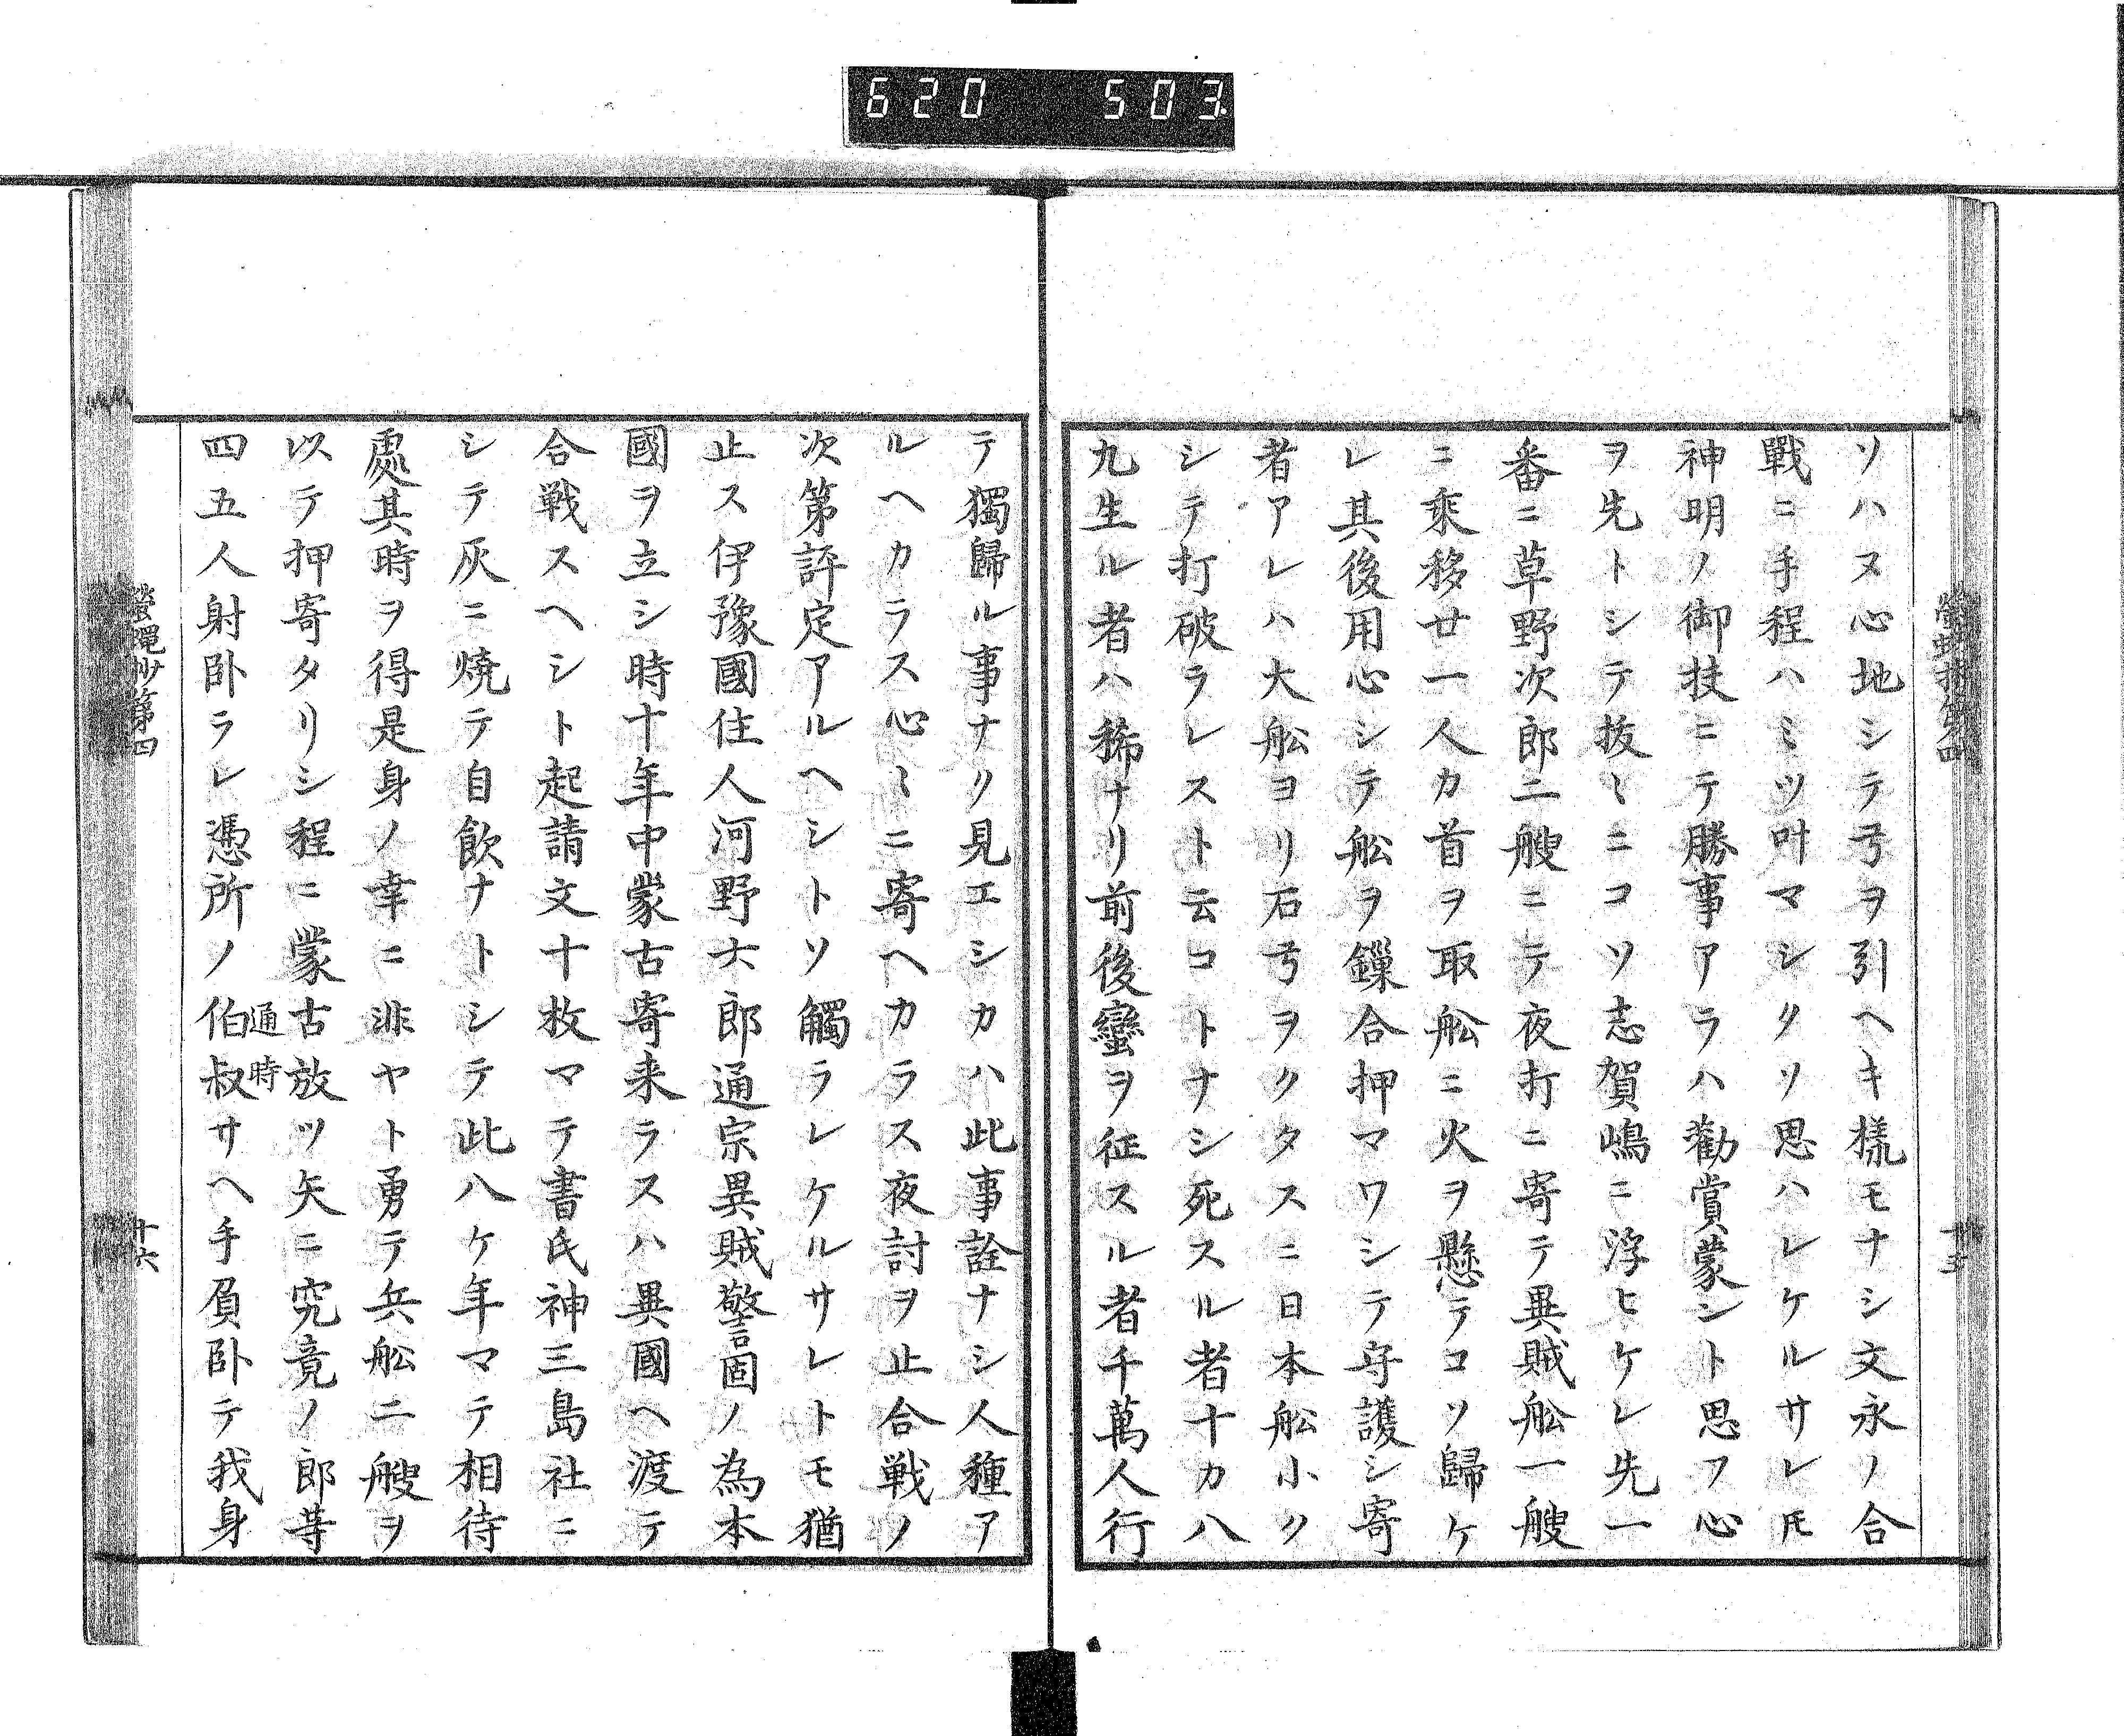 620 503
ソハヌ心地シテ弓ヲ引ヘキ樣モナシ文永ノ合
戰ニ手程ハミツ叶マシクソ思ハレケルサレ𪜈
神明ノ御扶ニテ勝事アラハ勸賞蒙シト思フ心
ヲ先トシテ抜〻ニコソ志賀嶋ニ浮ヒケレ先一
番ニ草野次郎二艘ニテ夜打ニ寄テ異賊舩一艘
ニ乘移廿一人カ首ヲ取舩ニ火ヲ懸テコソ歸ケ
レ其後用心シテ舩ヲ鏁合押マワシテ守護シ寄
者アレハ大舩ヨリ石弓ヲクタスニ日本舩小ク
シテ打破ラレスト云コトナシ死スル者十カ八
九生ル者ハ稀ナリ前後蠻ヲ征スル者千萬人行
十五
テ獨歸ル事ナク見エシカハ此事詮ナシ人種ア
ルヘカラス心〻ニ寄ヘカラス夜討ヲ止合戦ノ
次第評定アルヘシトソ觸ラレケルサレトモ猶
止ス伊豫國住人河野六郎通宗異賊警固ノ為本
國ヲ立シ時十年中蒙古寄来ラスハ異國ヘ渡テ
合戦スヘシト起請文十枚マテ書氏神三島社ニ
シテ灰ニ焼テ自飲ナトシテ此八ケ年マテ相待
處其時ヲ得是身ノ幸ニ非ヤト勇テ兵舩二艘ヲ
以テ押寄タリシ程ニ蒙古放ツ矢ニ究竟ノ郎等
四五人射卧ラレ憑所ノ伯叔サヘ手負卧テ我身
通時
螢蠅抄第四
十六